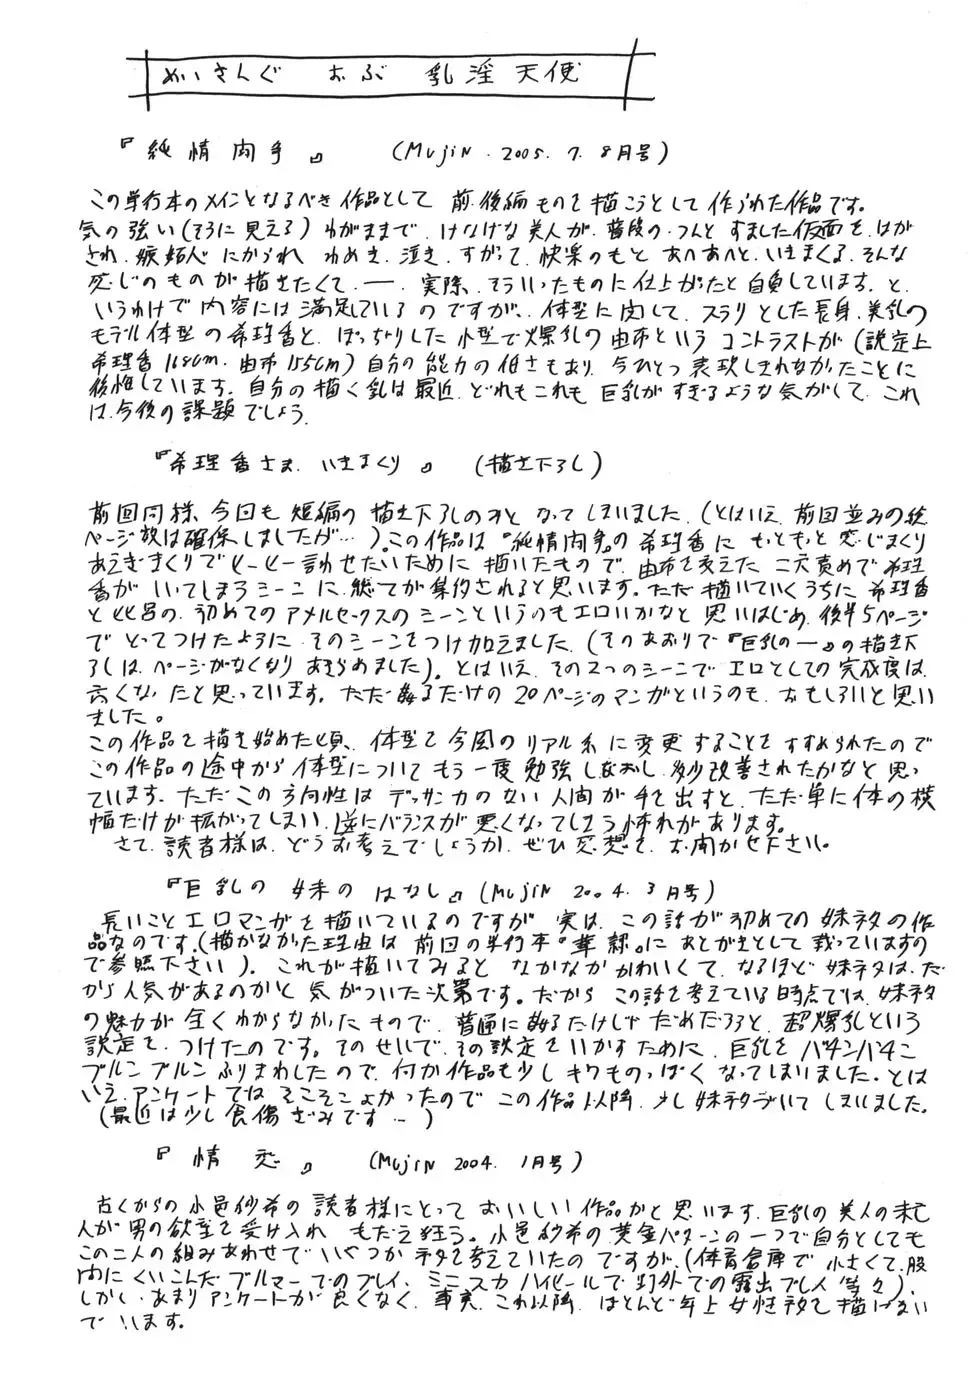 めいきんぐ おぶ 乳淫天使
『純情肉手』 (MUJIN.2005.7.8月号)
この単行本のメインとなるべき作品として前.後編ものを描こうとして作られた作品です。
気の強い(そうに見える)わがままで、けなげな美人が、普段の.つんとすました仮面を、はが
され、嫉妬心にかられ わめき、泣き、すがって、快楽のもと あへあへと、いきまくる、そんな
感じのものが描きたくて──、実際、そういったものに仕上がったと自負しています。と、
いうわけで内容には満足しているのですが、体型に関して、スラリとした長身、美乳の
モデル体型の希理香と、ぽっちゃりした小型で爆乳の由布というコントラストが(設定上
希理香168cm.由布155cm)自分の能力の低さもあり、今ひとつ表現しきれなかったことに
後悔しています。自分の描く乳は最近、どれもこれも巨乳がすぎるような気がして、これ
は、今後の課題でしょう。
『希理香さま.いきまくり』 (描き下ろし)
前回同様、今回も短編の描き下ろしのみとなってしまいました。(とはいえ、前回並みの総
ページ数は確保しましたが…)。この作品は『純情肉手』の希理香にもともと感じまくり
あえぎまくりでヒーヒー言わせたいために描いたもので、由布を交えた二穴責めで希理
香がいてしまうシーンに、総てが集約されると思います。ただ描いていくうちに希理香
と比呂の、初めてのアナルセックスのシーンというのもエロいかなと思いはじめ、後半5ページ
でとってつけたようにそのシーンをつけ加えました。(そのあおりで『巨乳の─』の描き下
ろしは、ページがなくなりあきらめました)。とはいえ、その2つのシーンでエロとしての完成度は
高くなったと思っています。ただ姦るだけの20ページのマンガというのも、おもしろいと思い
ました。
この作品を描き始めた頃、体型を今風のリアル系に変更することをすすめられたので
この作品の途中から体型についてもう一度勉強しなおし、多少改善されたかなと思っ
ています。ただこの方向性はデッサン力のない人間が手を出すと、ただ単に体の横
幅だけが拡がってしまい、逆にバランスが悪くなってしまう怖れがあります。
さて、読者様は、どうお考えでしょうか、ぜひ感想を、お聞かせ下さい。
『巨乳の妹のはなし』(MUJIN 2004.3月号)
長いことエロマンガを描いているのですが 実は、この話が初めての妹ネタの作
品なのです。(描かなかった理由は前回の単行本にあとがきとして載っていますの
で参照下さい)。これが描いてみると なかなかかわいくて、なるほど妹ネタは、だ
から人気があるのかと気がついた次第です。だから この話を考えている時点では、妹ネタ
の魅力が全くわからなかったもので、普通に姦るだけじゃだめだろうと、超爆乳という
設定を、つけたのです。そのせいで、その設定をいかすために、巨乳をバチンバチン
ブルンブルンふりまわしたので、何か作品も少しキワものっぽくなってしまいました。とは
いえ、アンケートではそこそこよかったのでこの作品以降、少し妹ネタづいてしまいました。
(最近は少し食傷ぎみです…)
『情恋』 (MUJIN 2004.1月号)
古くからの小邑紗希の読者様にとっておいしい作品かと思います。巨乳の美人の未亡
人が男の欲望を受け入れ もだえ狂う。小邑紗希の黄金パターンの一つで自分としても
この二人の組みあわせでいくつかネタを考えていたのですが、(体育倉庫で小さくて、股
間にくいこんだブルマーでのプレイ、ミニスカ ハイヒールで町外での露出プレイ等々)、
しかし、あまりアンケートが良くなく、事実、これ以降、ほとんど年上女性ネタを描けない
でいます。